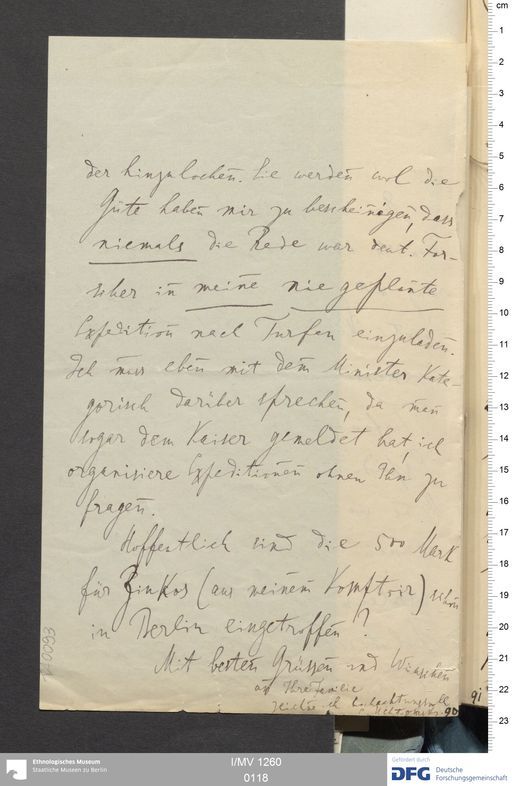 der hinzulocken. Sie werden wol die
Güte haben mir zu bescheinigen, dass
niemals die Rede war deut. For-
scher in meine nie geplante
Expedition nach Turfan einzuladen.
Ich muss eben mit dem Minister kate-
gorisch darüber sprechen, da man
sogar dem Kaiser gemeldet hat, ich
organisiere Expeditionen ohne Ihn zu
fragen.
Hoffentlich sind die 500 Mark
für (aus meinem Komptoir) schon
in Berlin eingetroffen?
Mit besten Grüssen und Wünschen
an Ihre Familie
hochachtungsvoll
91
90
cm
1
2
3
4
5
6
7
8
9
10
11
12
13
14
15
16
17
18
19
20
21
22
23
Ethnologisches Museum
Staatliche Museen zu Berlin
I/MV 1260
0118
Gefördert durch
DFG Deutsche
Forschungsgemeinschaft